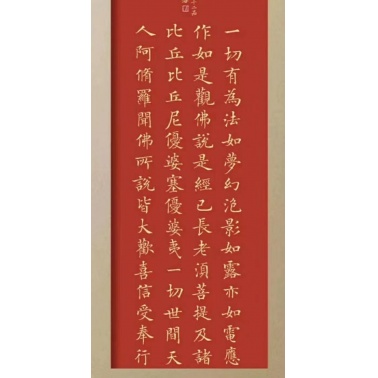 一切有為法如夢幻泡影如露亦如電應
作如是觀佛說是經已長老須菩提及諸
比丘比丘尼優婆塞優婆夷一切世間天
人阿脩羅聞佛所說皆大歡喜信受奉行